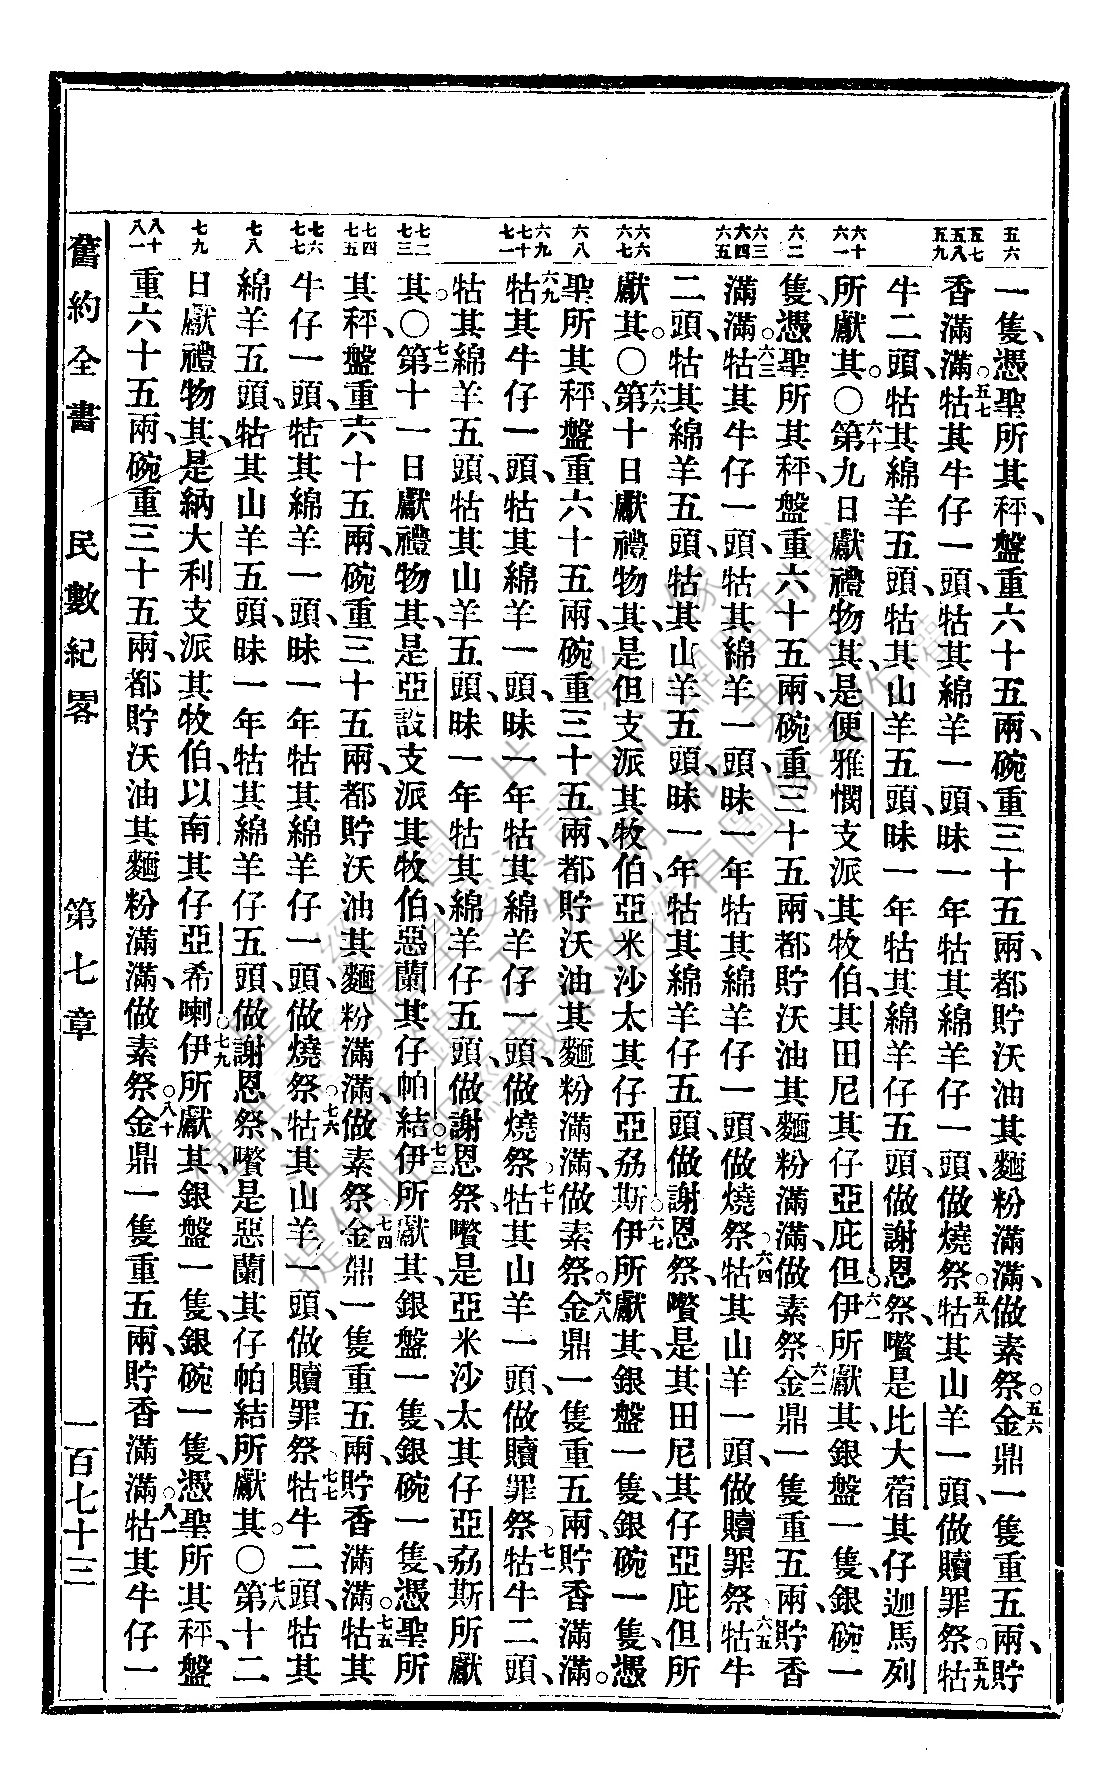 一隻、憑聖所其秤、盤重六十五兩、碗重三十五兩、都貯沃油其麵粉滿滿、做素祭。五六金鼎一隻重五兩、貯
香滿滿。五七牯其牛仔一頭、牯其綿羊一頭、昧一年牯其綿羊仔一頭、做燒祭。五八牯其山羊一頭、做贖罪祭。五九牯
牛二頭、牯其綿羊五頭、牯其山羊五頭、昧一年牯其綿羊仔五頭、做謝恩祭、嚽是比大蓿其仔迦馬列
所獻其。〇六十第九日獻禮物其、是便雅憫支派其牧伯、其田尼其仔亞庇但。六一伊所獻其銀盤一隻、銀碗一
隻、憑聖所其秤、盤重六十五兩、碗重三十五兩、都貯沃油其麵粉滿滿、做素祭。六二金鼎一隻重五兩、貯香
滿滿。六三牯其牛仔一頭、牯其綿羊一頭、昧一年牯其綿羊仔一頭、做燒祭。六四牯其山羊一頭、做贖罪祭。六五牯牛
二頭、牯其綿羊五頭、牯其山羊五頭、昧一年牯其綿羊仔五頭、做謝恩祭、嚽是其田尼其仔亞庇但所
獻其。〇六六第十日獻禮物其、是但支派其牧伯、亞米沙太其仔亞劦斯。六七伊所獻其銀盤一隻、銀碗一隻、憑
聖所其秤、盤重六十五兩、碗重三十五兩、都貯沃油其麵粉滿滿、做素祭。六八金鼎一隻重五兩、貯香滿滿。
六九牯其牛仔一頭、牯其綿羊一頭、昧一年牯其綿羊仔一頭、做燒祭。七十牯其山羊一頭、做贖罪祭。七一牯牛二頭、
牯其綿羊五頭、牯其山羊五頭、昧一年牯其綿羊仔五頭、做謝恩祭、嚽是亞米沙太其仔亞劦斯所獻
其。〇七二第十一日獻禮物其、是亞設支派其牧伯、惡蘭其仔帕結。七三伊所獻其銀盤一隻、銀碗一隻、憑聖所
其秤、盤重六十五兩、碗重三十五兩、都貯沃油其麵粉滿滿、做素祭。七四金鼎一隻重五兩、貯香滿滿。七五牯其
牛仔一頭、牯其綿羊一頭、昧一年牯其綿羊仔一頭、做燒祭。七六牯其山羊一頭、做贖罪祭。七七牯牛二頭、牯其
綿羊五頭、牯其山羊五頭、昧一年牯其綿羊仔五頭、做謝恩祭、嚽是惡蘭其仔帕結所獻其。〇七八第十二
日獻禮物其、是納大利支派其牧伯、以南其仔亞希喇。七九伊所獻其銀盤一隻、銀碗一隻、憑聖所其秤、盤
重六十五兩、碗重三十五兩、都貯沃油其麵粉滿滿、做素祭。八十金鼎一隻重五兩、貯香滿滿。八一牯其牛仔一
舊約全書 民數紀畧 第七章 一百七十三